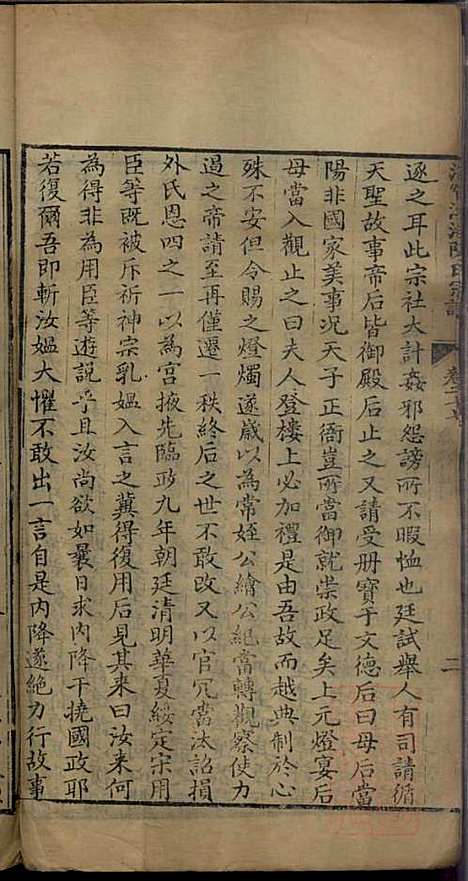 逐之耳此宗社大計姦邪怨謗所不暇恤也廷試舉人有司請循
天聖故事帝后皆御殿后止之又請受册寶于文德后曰母后當
陽非國家美事況天子正衙豈所當御就崇政足矣上元燈宴后
母當入觀止之曰夫人登楼上必加禮是由吾故而越典制於心
殊不安但令賜之燈燭遂歲以為常姪公繪公紀當轉觀察使力
遏之帝請至再僅遷一秩終后之世不敢改又以官冗當汰詔損
外氏恩四之一以為宮掖先臨政九年朝廷清明華夏綏定宋用
臣等既被斥祈神宗乳媼入言之冀得復用后見其来曰汝来何
為得非為用臣等遊説乎且汝尚欲如曩日求內降干撓國政耶
若復爾吾即斬汝媼大懼不敢出一言自是内降遂絶力行故事
二